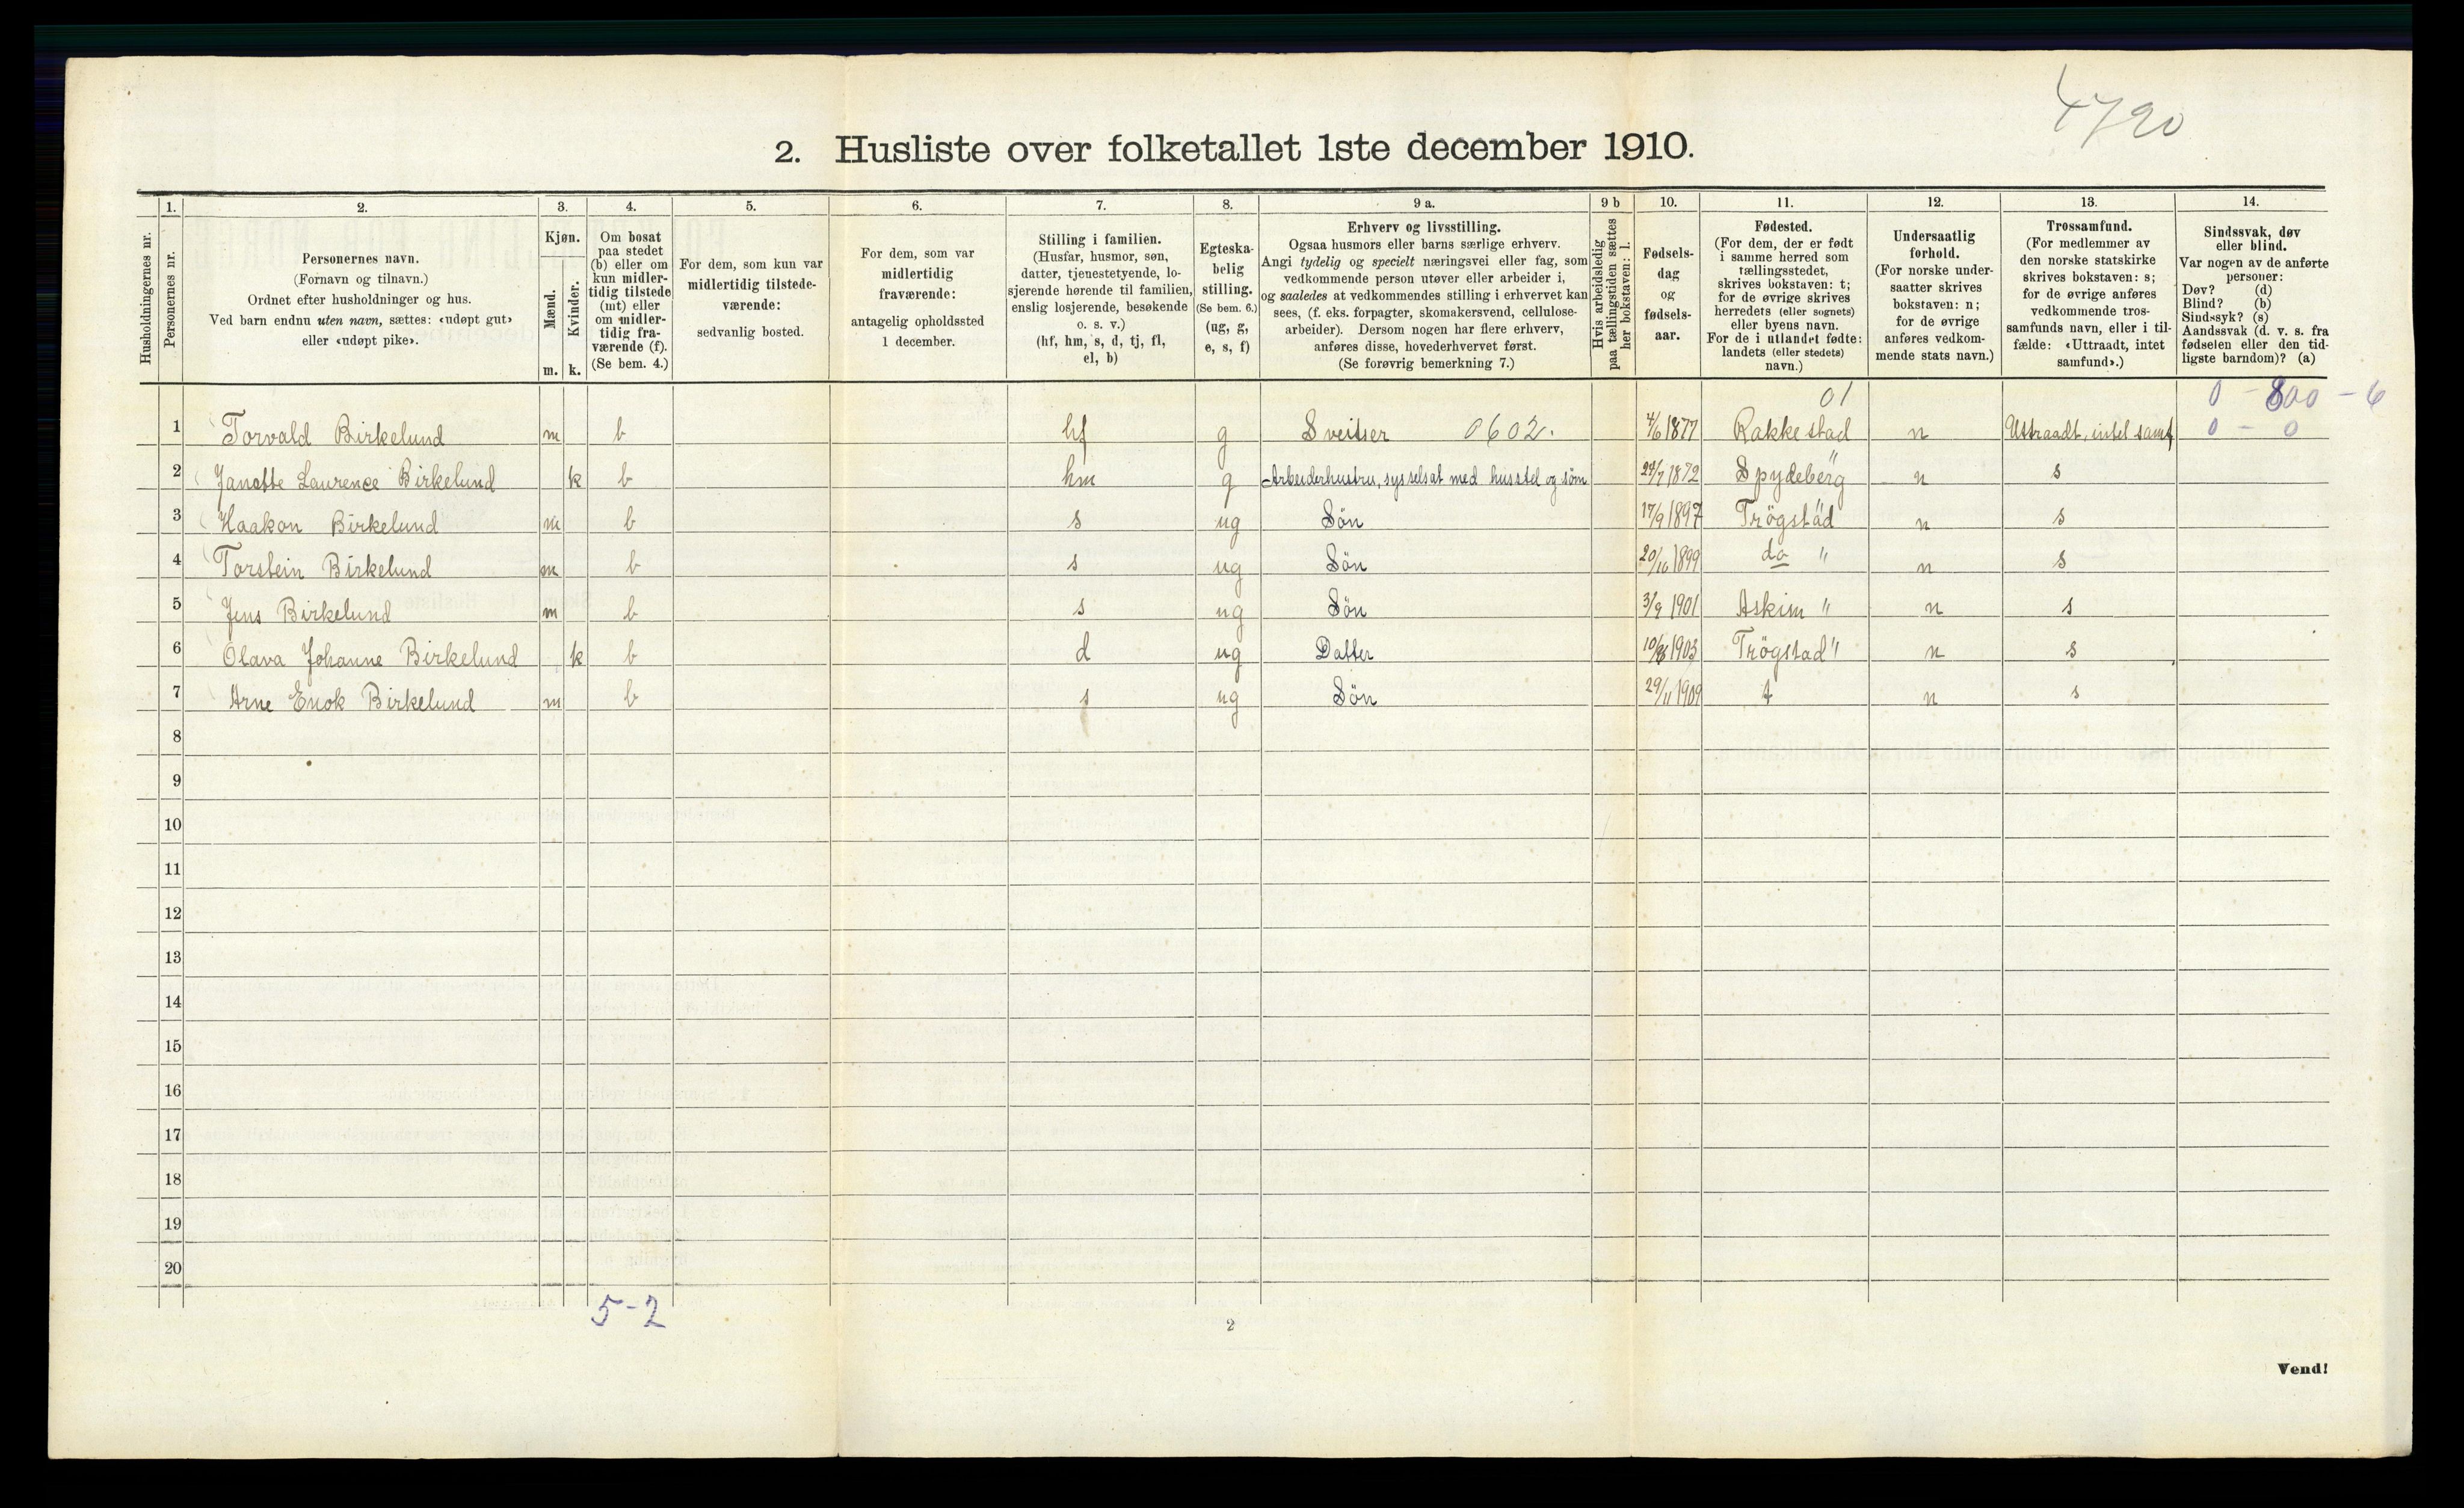 4720
2. Husliste over folketallet 1ste december 1910.
Husholdningernes nr.
1. Personernes nr.
2. Personernes navn.
(Fornavn og tilnavn.)
Ordnet efter husholdninger og hus.
Ved barn endnu uten navn, sættes: «udøpt gut»
eller «udøpt pike».
3. Kjøn.
Mænd. m.
Kvinder. k.
4. Om bosat
paa stedet
(b) eller om
kun midler-
tidig tilstede
(mt) eller
om midler-
tidig fra-
værende (f).
(Se bem. 4.)
5. For dem, som kun var
midlertidig tilstede-
værende:
sedvanlig bosted.
6. For dem, som var
midlertidig
fraværende:
antagelig opholdssted
1 december.
7. Stilling i familien.
(Husfar, husmor, søn,
datter, tjenestetyende, lo-
sjerende hørende til familien,
enslig losjerende, besøkende
o. s. v.)
(hf, hm, s, d, tj, fl,
el, b)
8. Egteska-
belig
stilling.
(Se bem. 6.)
(ug, g,
e, s, f)
9 a. Erhverv og livsstilling.
Ogsaa husmors eller barns særlige erhverv.
Angi tydelig og specielt næringsvei eller fag, som
vedkommende person utøver eller arbeider i,
og saaledes at vedkommendes stilling i erhvervet kan
sees, (f. eks. forpagter, skomakersvend, cellulose-
arbeider). Dersom nogen har flere erhverv,
anføres disse, hovederhvervet først.
(Se forøvrig bemerkning 7.)
9 b Hvis arbeidsledig
paa tællingstiden sættes
her bokstaven: l.
10. Fødsels-
dag
og
fødsels-
aar.
11. Fødested.
(For dem, der er født
i samme herred som
tællingsstedet,
skrives bokstaven: t;
for de øvrige skrives
herredets (eller sognets)
eller byens navn.
For de i utlandet fødte:
landets (eller stedets)
navn.)
12. Undersaatlig
forhold.
(For norske under-
saatter skrives
bokstaven: n;
for de øvrige
anføres vedkom-
mende stats navn.)
13. Trossamfund.
(For medlemmer av
den norske statskirke
skrives bokstaven: s;
for de øvrige anføres
vedkommende tros-
samfunds navn, eller i til-
fælde: «Uttraadt, intet
samfund».)
14. Sindssvak, døv
eller blind.
Var nogen av de anførte
personer:
Døv? (d)
Blind? (b)
Sindssyk? (s)
Aandssvak (d. v. s. fra
fødselen eller den tid-
ligste barndom)? (a)
01 0 - 800 - 6
1 Torvald Birkelund m b hf g Sveitser 0602. 4/6 1877 Rakkestad n Uttraadt, intet samf 0 - 0
2 Janette Laurence Birkelund k b hm g Arbeiderhustru, sysselsat med husstel og søm 24/7 1872 Spydeberg " n s
3 Haakon Birkelund m b s ug Sön 17/9 1897 Trögstad " n s
4 Torstein Birkelund m b s ug Sön 20/10 1899 do " n s
5 Jens Birkelund m b s ug Sön 3/9 1901 Askim " n s
6 Olava Johanne Birkelund k b d ug Datter 1903 Trögstad " n s
7 Arne Enok Birkelund m b s ug Sön 29/11 1909 t n s
8
9
10
11
12
13
14
15
16
17
18
19
20
5-2
2
Vend!